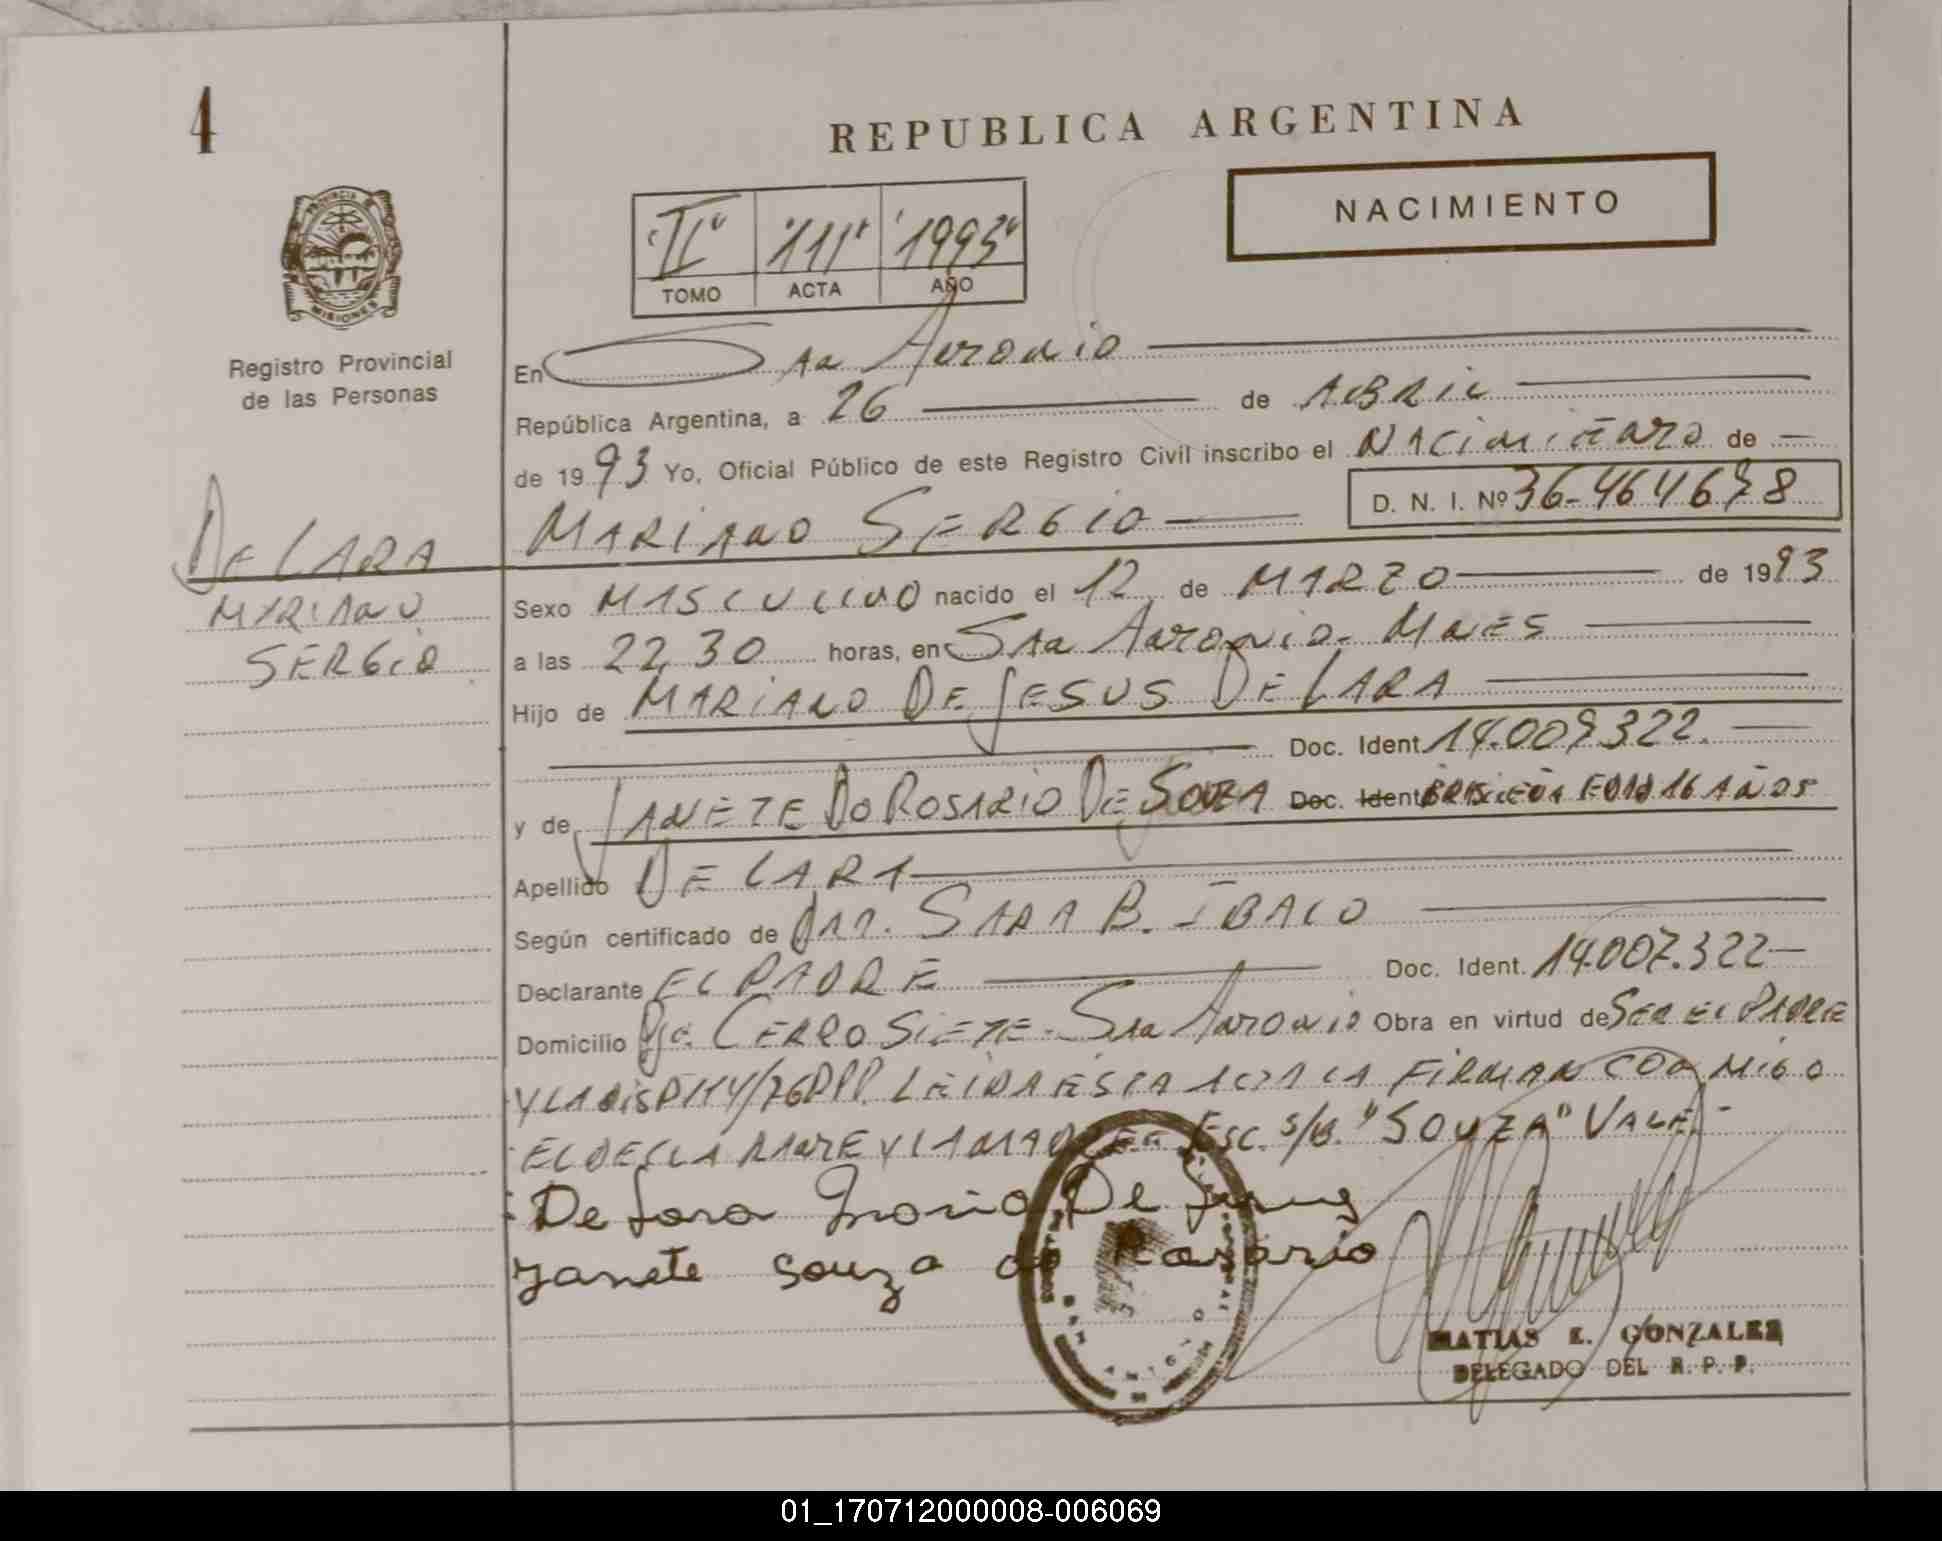 4
REPUBLICA ARGENTINA
NACIMIENTO
"II" "111" "1993"
TOMO ACTA AÑO
PROVINCIA DE MISIONES
Registro Provincial
de las Personas
En Sta Antonio
República Argentina, a 26 de ABRIL
de 1993 Yo, Oficial Público de este Registro Civil inscribo el NACIMIENTO de
D. N. I. Nº 36-464678
MARIANO SERGIO
DE LARA
MARIANO
SERGIO
Sexo MASCULINO nacido el 12 de MARZO de 1993
a las 22,30 horas, en Sta Antonio - MNES
Hijo de MARIANO DE JESUS DE LARA
Doc. Ident. 14.007.322.
y de JANETE DO ROSARIO DE SOUZA Doc. Ident. 16 AÑOS
Apellido DE LARA
Según certificado de DRA. SARA B.
Declarante EL PADRE Doc. Ident. 14.007.322
Domicilio CERRO SIETE - Sta Antonio Obra en virtud de SER EL PADRE
Y LA LEIDA ESTA ACTA LA FIRMAN CONMIGO
EL DECLARANTE Y LA MADRE - Esc. S/B. "SOUZA" VALE. -
De Lara Mario De Jesus
Janete Souza do Rosario
MATIAS E. GONZALEZ
DELEGADO DEL R. P. P.
01_170712000008-006069